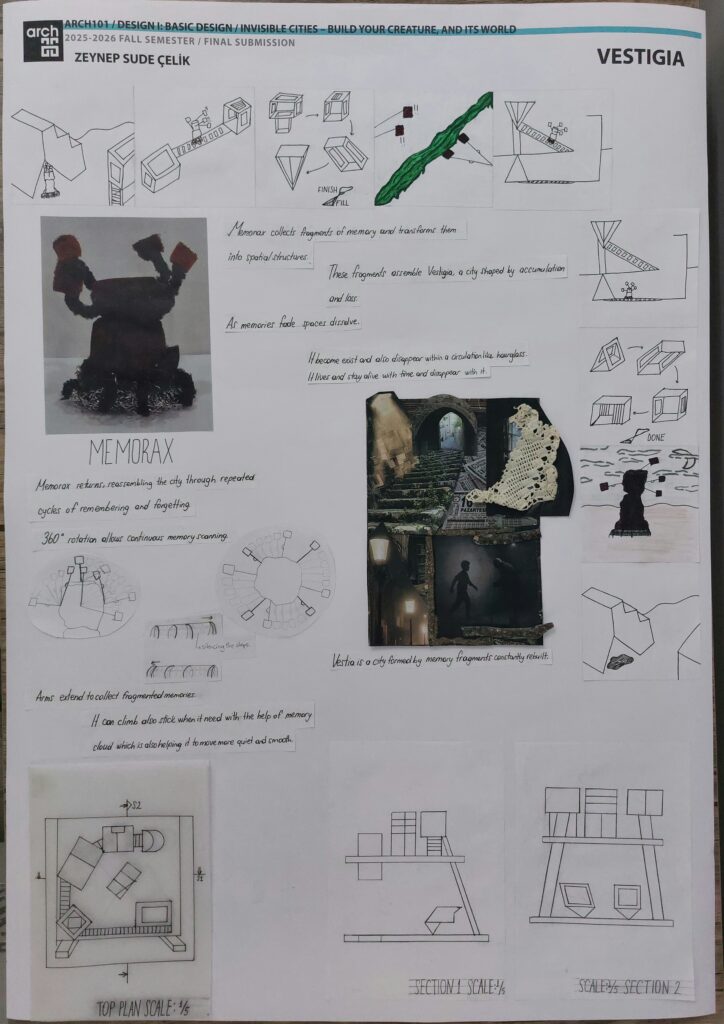 arch
ARCH101 / DESIGN I: BASIC DESIGN / INVISIBLE CITIES – BUILD YOUR CREATURE, AND ITS WORLD
2025-2026 FALL SEMESTER / FINAL SUBMISSION
ZEYNEP SUDE ÇELİK
VESTIGIA
FINISH
FILL
Memorax collects fragments of memory and transforms them
into spatial structures.
These fragments assemble Vestigia, a city shaped by accumulation
and loss.
As memories fade spaces dissolve.
It become exist and also disappear within a circulation like hourglass.
It lives and stay alive with time and disappear with it.
DONE
MEMORAX
Memorax returns, reassembling the city through repeated
cycles of remembering and forgetting.
360° rotation allows continuous memory scanning.
silencing the steps
PAZARTESİ
Vestia is a city formed by memory fragments constantly rebuilt.
Arms extend to collect fragmented memories.
It can climb also stick when it need with the help of memory
cloud which is also helping it to move more quiet and smooth.
S2
S1
TOP PLAN SCALE: 1/5
SECTION 1 SCALE: 1/5
SCALE: 1/5 SECTION 2